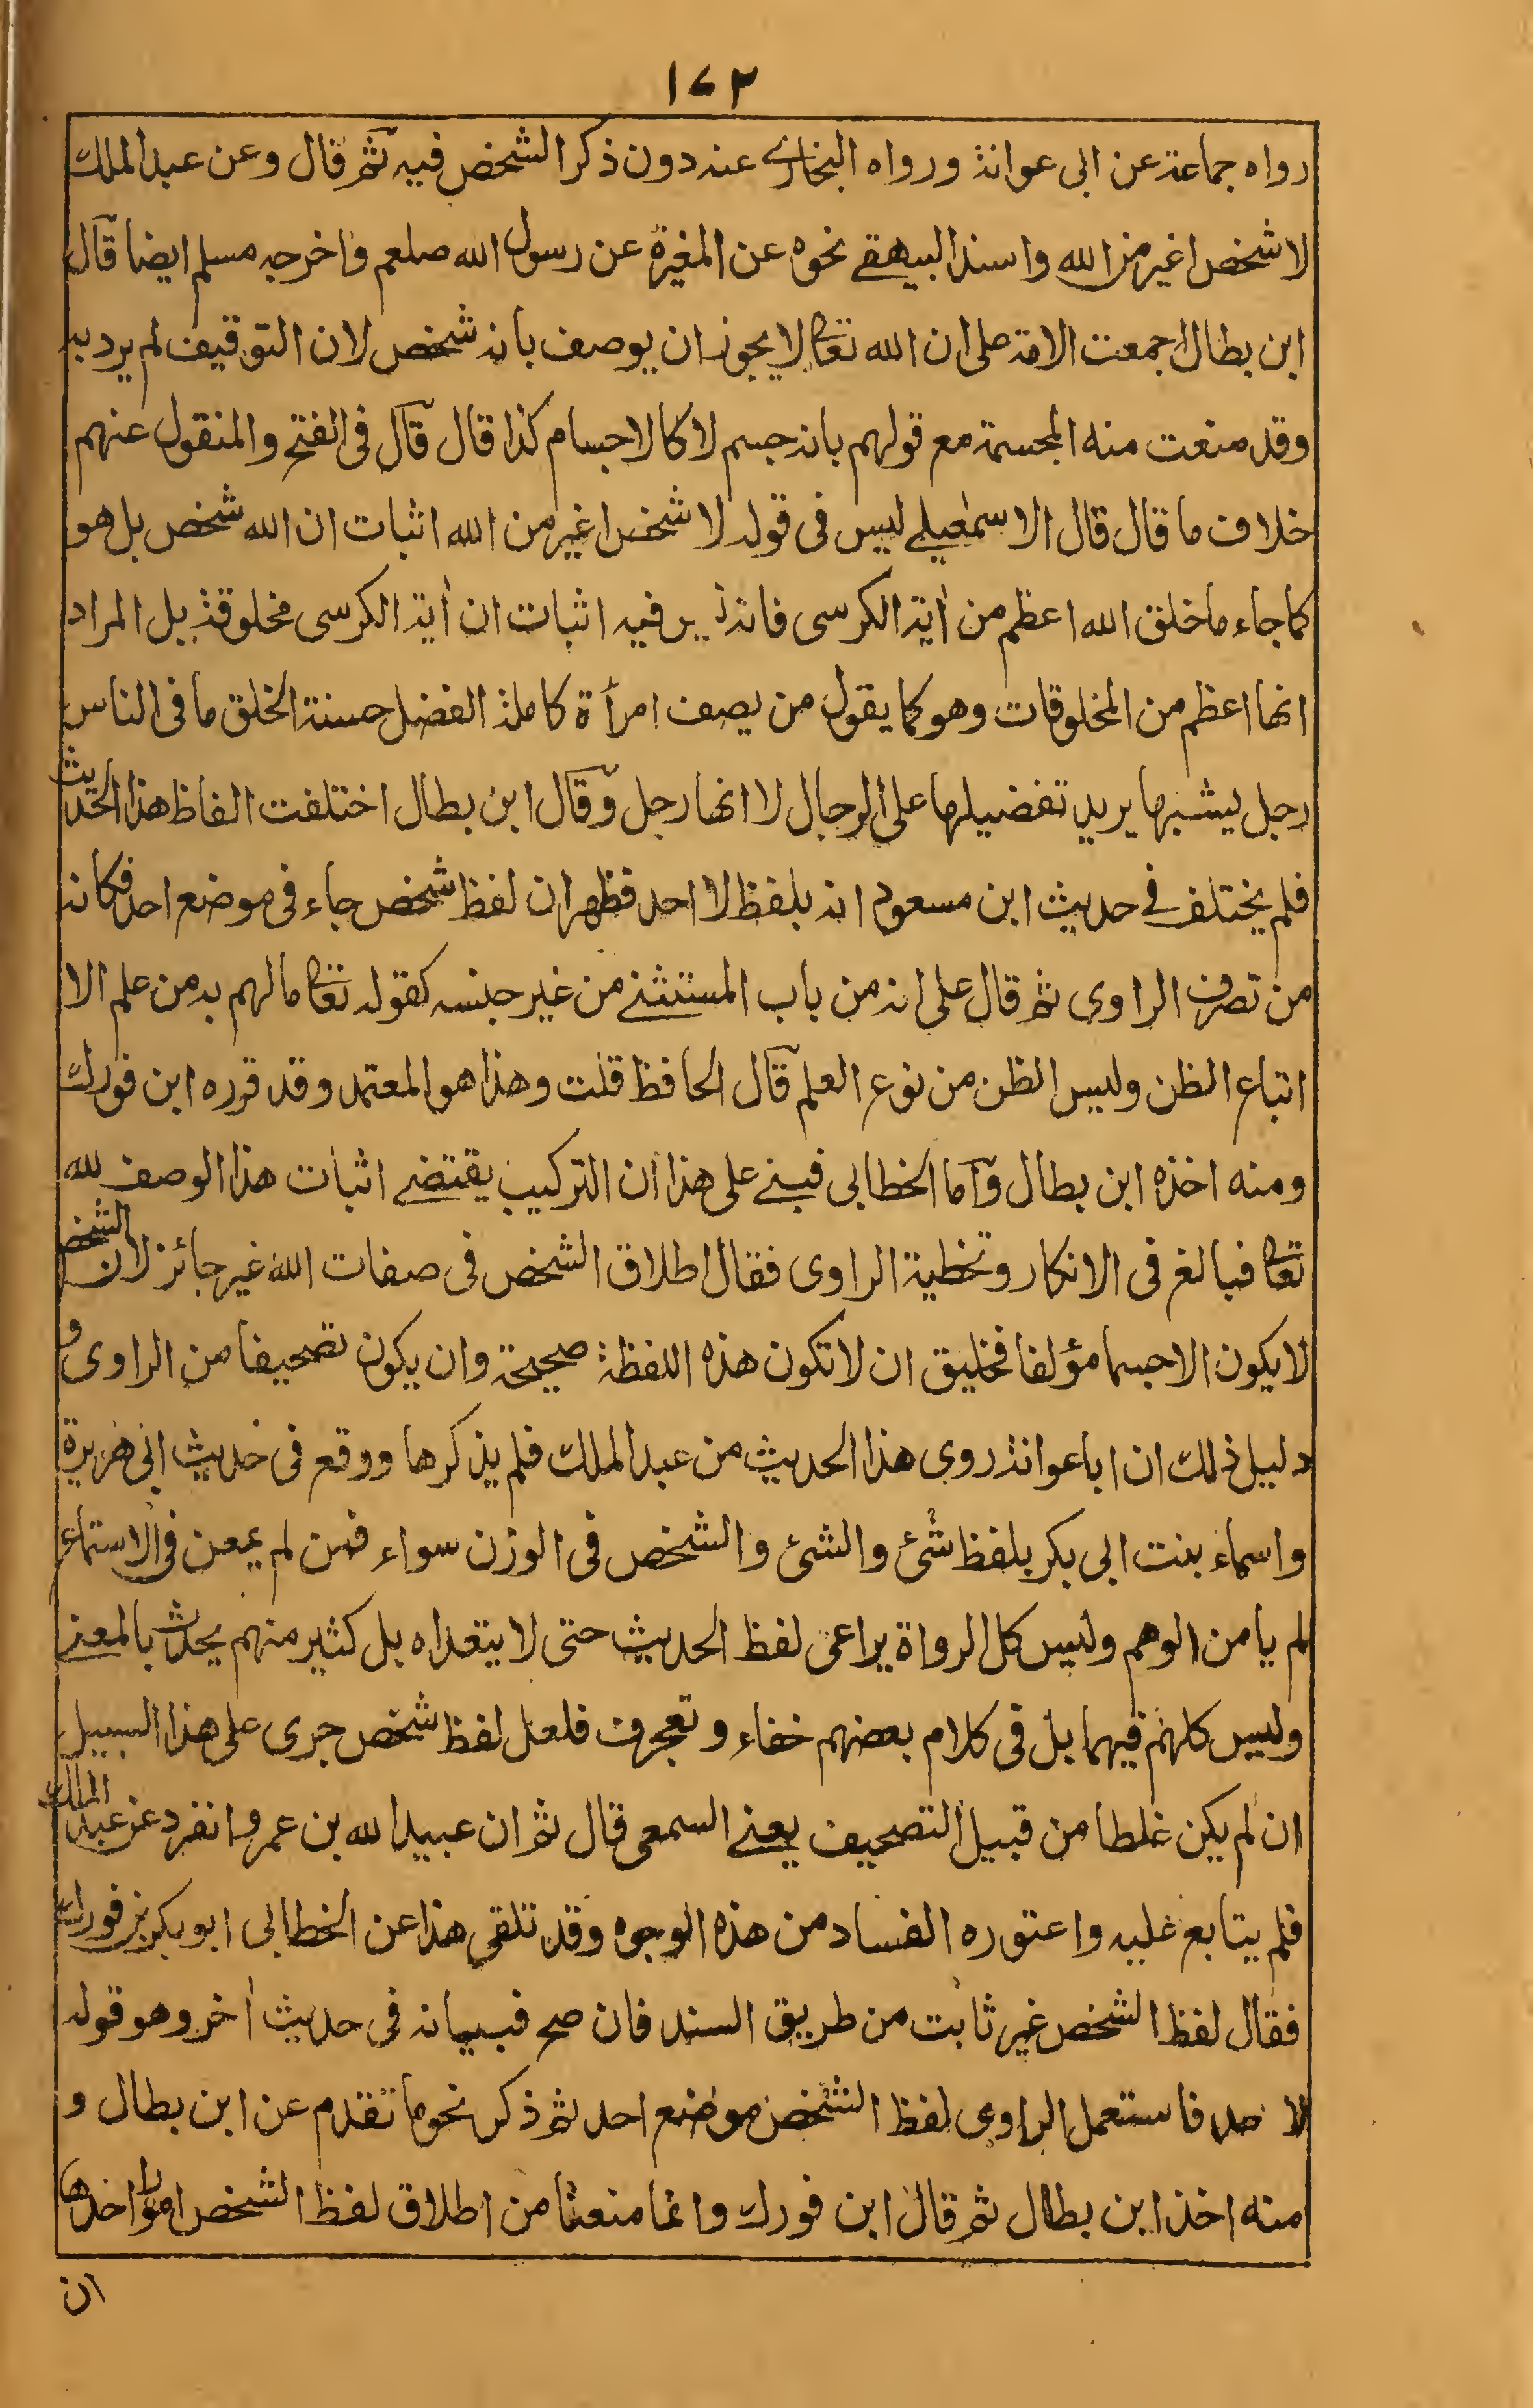 ١٧٢
رواه جماعة عن ابى عوانة ورواه البخارى عنه دون ذكر الشخص فيه ثم قال وعن عبد الملك
لا شخص اغير من الله واسند البيهقى نحوه عن المغيرة عن رسول الله صلعم واخرجه مسلم ايضا قال
ابن بطال اجمعت الامة على ان الله تعالى لا يجوز ان يوصف بانه شخص لان التوقيف لم يرد به
وقد منعت منه المجسمة مع قولهم بانه جسم لا كالاجسام كذا قال قال فى الفتح والمنقول عنهم
خلاف ما قال قال الاسمعيلى ليس فى قوله لا شخص اغير من الله اثبات ان الله شخص بل هو
كما جاء ما خلق الله اعظم من أية الكرسى فانه فيه اثبات ان أية الكرسى مخلوقة بل المراد
انها اعظم من المخلوقات وهو كما يقول من يصف امرأة كاملة الفضل حسنة الخلق ما فى الناس
رجل يشبهها يريد تفضيلها على الرجال لا انها رجل وقال ابن بطال اختلفت الفاظ هذا الحديث
فلم يختلف فى حديث ابن مسعود انه بلفظ لا احد فظهر ان لفظ شخص جاء فى موضع احد فكانه
من تصرف الراوى ثم قال على انه من باب المستثنى من غير جنسه كقوله تعالى ما لهم به من علم الا
اتباع الظن وليس الظن من نوع العلم قال الحافظ قلت وهذا هو المعتمد وقد قرره ابن فورك
ومنه اخذه ابن بطال واما الخطابى فبنى على هذا ان التركيب يقتضى اثبات هذا الوصف لله
تعالى فبالغ فى الانكار وتخطية الراوى فقال اطلاق الشخص فى صفات الله غير جائز لان الشخص
لا يكون الا جسما مؤلفا فخليق ان لا تكون هذه اللفظة صحيحة وان يكون تصحيفا من الراوى و
دليل ذلك ان ابا عوانة روى هذا الحديث من عبد الملك فلم يذكرها ووقع فى حديث ابى هريرة
واسماء بنت ابى بكر بلفظ شئ والشئ والشخص فى الوزن سواء فمن لم يمعن فى الاستماع
لم يأمن الوهم وليس كل الرواة يراعى لفظ الحديث حتى لا يتعداه بل كثير منهم يحدث بالمعنى
وليس كلهم فهما بل فى كلام بعضهم خفاء وتعجرف فلعل لفظ شخص جرى على هذا السبيل
ان لم يكن غلطا من قبيل التصحيف يعنى السمعى قال ثم ان عبيد الله بن عمرو انفرد عن عبد الملك
فلم يتابع عليه واعتوره الفساد من هذه الوجوه وقد تلقى هذا عن الخطابى ابو بكر بن فورك
فقال لفظ الشخص غير ثابت من طريق السند فان صح فبيانه فى حديث أخر وهو قوله
لا احد فاستعمل الراوى لفظ الشخص موضع احد ثم ذكر نحو ما تقدم عن ابن بطال و
منه اخذ ابن بطال ثم قال ابن فورك وانما منعنا من اطلاق لفظ الشخص امورا احدها
ان